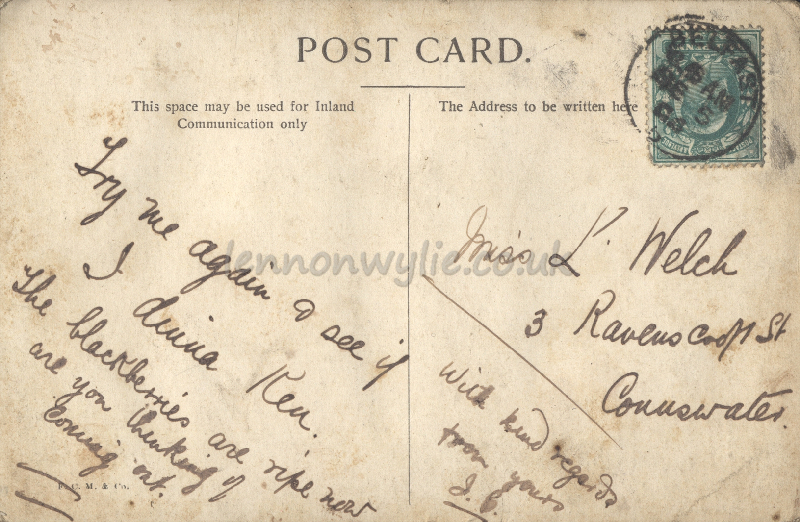 POST CARD.
This space may be used for Inland
Communication only
The Address to be written here
BELFAST
Try me again & see if
I dinna Ken.
The blackberries are ripe now
are you thinking of
coming out.
Miss L. Welch
3 Ravenscroft St
Connswater.
With kind regards
from yours
J. C.
lennonwylie.co.uk
F. C. M. & Co.